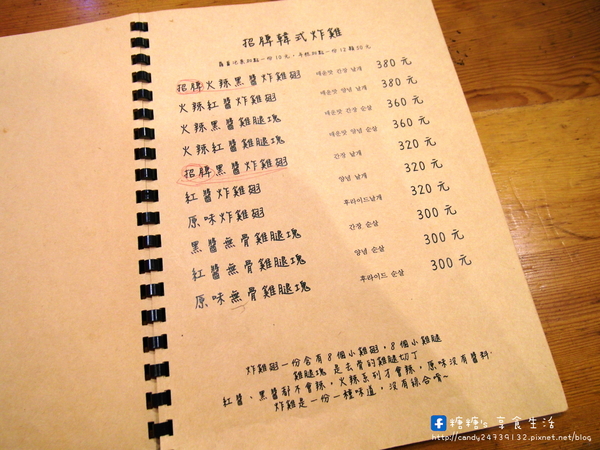 招牌韓式炸雞
招牌火辣黑醬炸雞翅 매운맛 간장 날개 380 元
火辣紅醬炸雞翅 매운맛 양념 날개 380 元
火辣黑醬雞腿塊 매운맛 간장 순살 360 元
火辣紅醬雞腿塊 매운맛 양념 순살 360 元
招牌黑醬炸雞翅 간장 날개 320 元
紅醬炸雞翅 양념 날개 320 元
原味炸雞翅 후라이드날개 320 元
黑醬無骨雞腿塊 간장 순살 300 元
紅醬無骨雞腿塊 양념 순살 300 元
原味無骨雞腿塊 후라이드 순살 300 元
炸雞翅一份含有8個小雞翅,8個小雞腿
雞腿塊是去骨的雞腿切丁
紅醬、黑醬都不會辣,火辣系列才會辣,原味沒有醬料.
炸雞是一份一種味道,沒有綜合唷~
糖糖's 享食生活
http://candy24739132.pixnet.net/blog